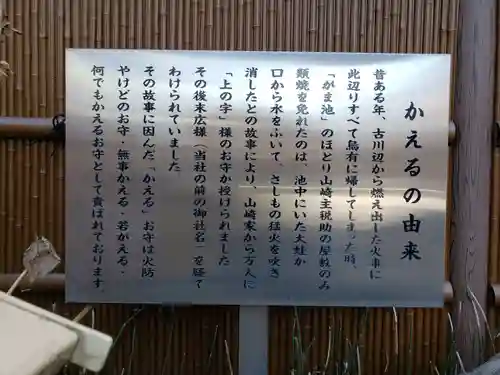 かえるの由来
昔ある年、古川辺から燃え出した火事に
此辺りすべて烏有に帰してしまった時、
「がま池」のほとり山崎主税助の屋敷のみ
類焼を免れたのは、池中にいた大蛙が
口から水をふいて、さしもの猛火を吹き
消したとの故事により、山崎家から万人に
「上の字」様のお守が授けられました
その後末広様（当社の前の御社名）を経て
わけられていました
その故事に因んだ「かえる」お守は火防
やけどのお守・無事かえる・若がえる・
何でもかえるお守として貴ばれております。